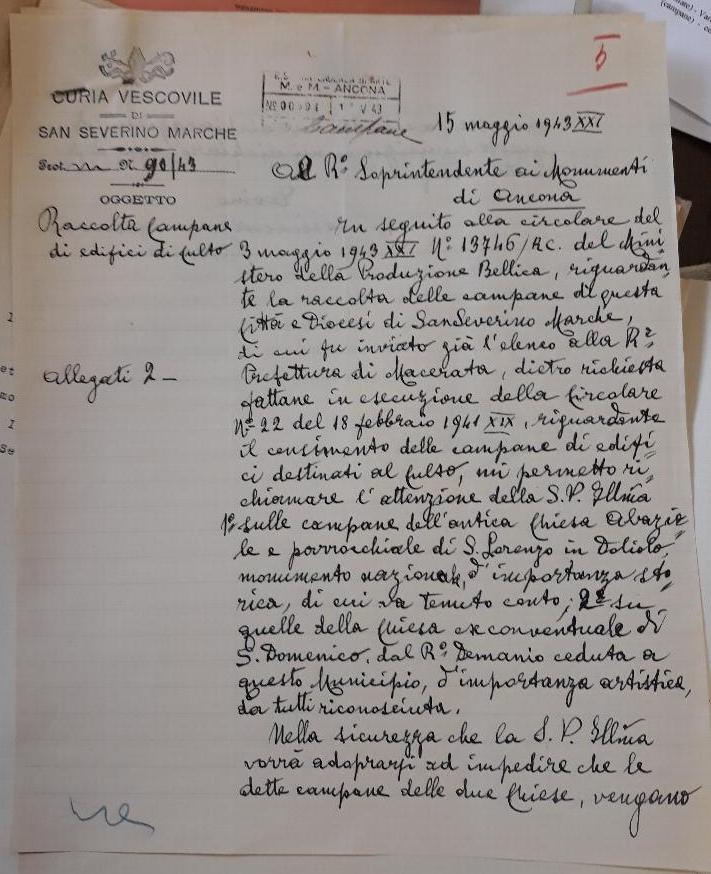 5
CURIA VESCOVILE
DI
SAN SEVERINO MARCHE
Prot. N. 90/43
OGGETTO
Raccolta Campane
di edifici di culto
Allegati 2 -
M. e M. - ANCONA
Campane
15 maggio 1943 XXI
Al R.º Soprintendente ai Monumenti
di Ancona
In seguito alla circolare del
3 maggio 1943 XXI Nº 13746/RC. del Mini
stero della Produzione Bellica, riguardan
te la raccolta delle campane di questa
Città e Diocesi di SanSeverino Marche,
di cui fu inviato già l'elenco alla R.ª
Prefettura di Macerata, dietro richiesta
fattane in esecuzione della Circolare
Nº 22 del 18 febbraio 1941 XIX, riguardente
il censimento delle campane di edifi
ci destinati al culto, mi permetto ri
chiamare l'attenzione della S.V. Illma
1º sulle campane dell'antica Chiesa Abazia
le e parrocchiale di S. Lorenzo in Doliolo,
monumento nazionale, d'importanza sto
rica, di cui va tenuto conto; 2º su
quelle della Chiesa exconventuale di
S. Domenico, dal R.º Demanio ceduta a
questo Municipio, d'importanza artistica,
da tutti riconosciuta.
Nella sicurezza che la S. V. Illma
vorrà adoprarsi ad impedire che le
dette campane delle due Chiese, vengano